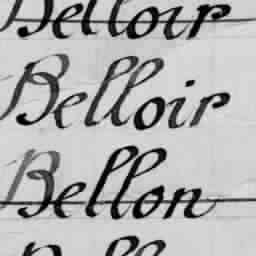 Belloir
Belloir
Bellon